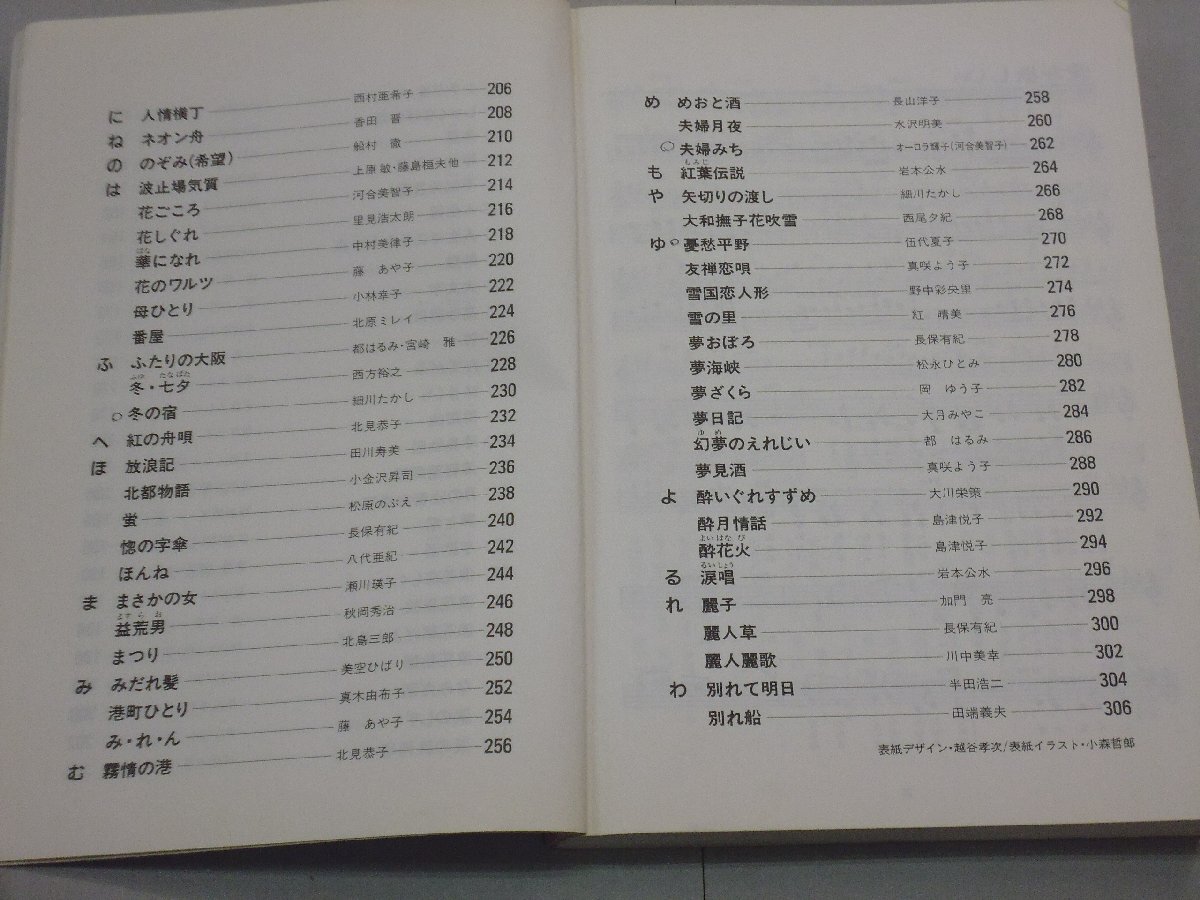 に 人情横丁 西村亜希子 206
ね ネオン舟 香田 晋 208
の のぞみ(希望) 船村 徹 210
は 波止場気質 上原 敏・藤島桓夫他 212
花ごころ 河合美智子 214
花しぐれ 里見浩太朗 216
はな
華になれ 中村美律子 218
花のワルツ 藤 あや子 220
母ひとり 小林幸子 222
番屋 北原ミレイ 224
ふ ふたりの大阪 都はるみ・宮崎 雅 226
ふゆ たなばた
冬・七夕 西方裕之 228
○冬の宿 細川たかし 230
へ 紅の舟唄 北見恭子 232
ほ 放浪記 田川寿美 234
北都物語 小金沢昇司 236
蛍 松原のぶえ 238
惚の字傘 長保有紀 240
ほんね 八代亜紀 242
ま まさかの女 瀬川瑛子 244
ますらお
益荒男 秋岡秀治 246
まつり 北島三郎 248
み みだれ髪 美空ひばり 250
港町ひとり 真木由布子 252
み・れ・ん 藤 あや子 254
む 霧情の港 北見恭子 256
め めおと酒 長山洋子 258
夫婦月夜 水沢明美 260
○夫婦みち オーロラ輝子(河合美智子) 262
もみじ
も 紅葉伝説 岩本公水 264
や 矢切りの渡し 細川たかし 266
大和撫子花吹雪 西尾夕紀 268
ゆ○憂愁平野 伍代夏子 270
友禅恋唄 真咲よう子 272
雪国恋人形 野中彩央里 274
雪の里 紅 晴美 276
夢おぼろ 長保有紀 278
夢海峡 松永ひとみ 280
夢ざくら 岡 ゆう子 282
夢日記 大月みやこ 284
ゆめ
幻夢のえれじい 都 はるみ 286
夢見酒 真咲よう子 288
よ 酔いぐれすずめ 大川栄策 290
酔月情話 島津悦子 292
よいはなび
酔花火 島津悦子 294
るいしょう
る 涙唱 岩本公水 296
れ 麗子 加門 亮 298
麗人草 長保有紀 300
麗人麗歌 川中美幸 302
わ 別れて明日 半田浩二 304
別れ船 田端義夫 306
表紙デザイン・越谷孝次/表紙イラスト・小森哲郎